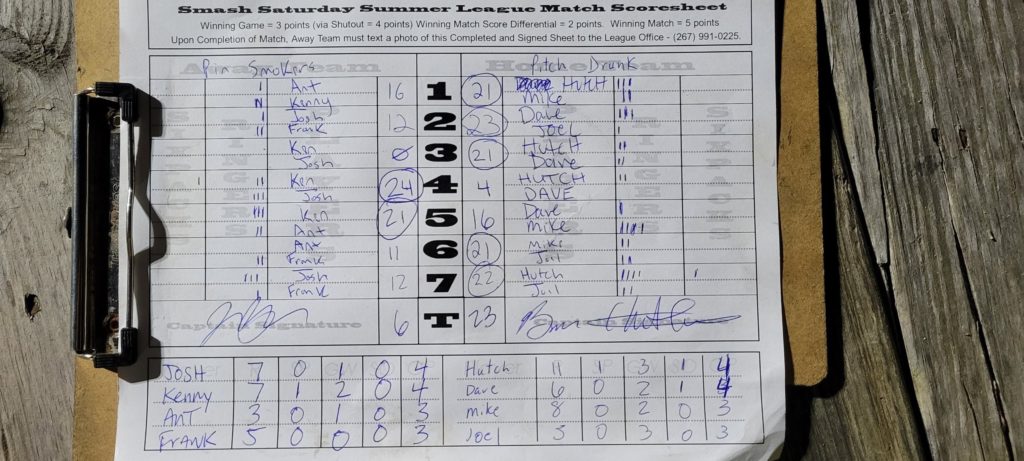 Smash Saturday Summer League Match Scoresheet
Winning Game = 3 points (via Shutout = 4 points) Winning Match Score Differential = 2 points. Winning Match = 5 points
Upon Completion of Match, Away Team must text a photo of this Completed and Signed Sheet to the League Office - (267) 991-0225.
Away Team Smokers Home Team Pitch Drunk
Ant 16 1 21 HUTCH
Kenny Mike
Josh 12 2 23 Dave
Frank JOEL
Ken 0 3 21 HUTCH
Josh Dave
Ken 24 4 4 HUTCH
Josh DAVE
Ken 21 5 16 Dave
Ant Mike
Ant 11 6 21 Mike
Frank Joil
Josh 12 7 22 Hutch
Frank Joil
Captain Signature 6 T 23
JOSH 7 0 1 0 4 Hutch 11 1 3 1 4
Kenny 7 1 2 0 4 Dave 6 0 2 1 4
ANT 3 0 1 0 3 Mike 8 0 2 0 3
FRANK 5 0 0 0 3 Joel 5 0 3 0 3